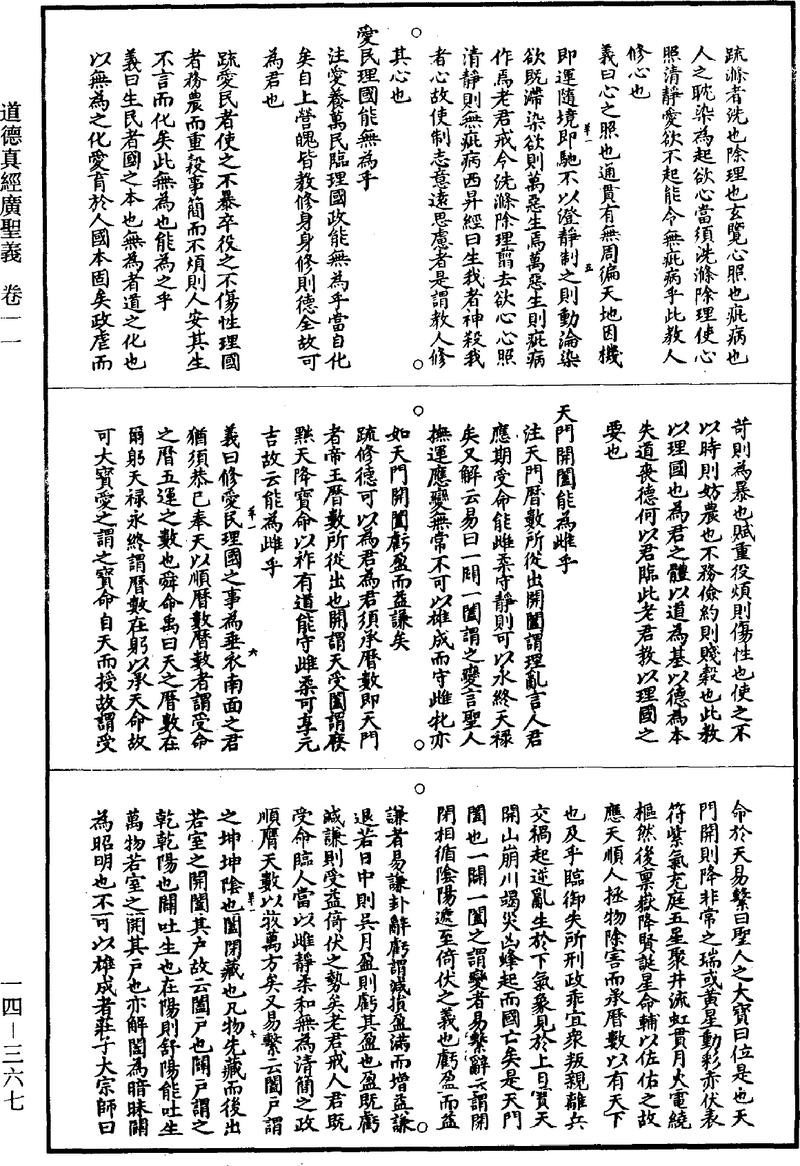 道德真經廣聖義　卷一一
一四—三六七
疏滌者洗也除理也玄覽心照也疵病也
人之耽染為起欲心當須洗滌除理使心
照清靜愛欲不起能令無疵病乎此教人
修心也
義曰心之照也通貫有無周徧天地因機
即運隨境即馳不以澄靜制之則動淪染
欲既滯染欲則萬惡生焉萬惡生則疵病
作焉老君戒令洗滌除理翦去欲心心照
清靜則無疵病西昇經曰生我者神殺我
者心故使制志意遠思慮者是謂教人修
其心也
愛民理國能無為乎
注愛養萬民臨理國政能無為乎當自化
矣自上營魄皆教修身身修則德全故可
為君也
疏愛民者使之不暴卒役之不傷性理國
者務農而重穀事簡而不煩則人安其生
不言而化矣此無為也能為之乎
義曰生民者國之本也無為者道之化也
以無為之化愛育於人國本固矣政虐而
苛則為暴也賦重役煩則傷性也使之不
以時則妨農也不務儉約則賤穀也此教
以理國也為君之體以道為基以德為本
失道喪德何以君臨此老君教以理國之
要也
天門開闔能為雌乎
注天門曆數所從出開闔謂理亂言人君
應期受命能雌柔守靜則可以永終天祿
矣又解云易曰一闢一闔謂之變言聖人
撫運應變無常不可以雄成而守雌牝亦
如天門開闔虧盈而益謙矣
疏修德可以為君為君須承曆數即天門
者帝王曆數所從出也開謂天受闔謂廢
黜天降寶命以祚有道能守雌柔可享元
吉故云能為雌乎
義曰修愛民理國之事為垂衣南面之君
猶須恭己奉天以順曆數曆數者謂受命
之曆五運之數也舜命禹曰天之曆數在
爾躬天祿永終謂曆數在躬以承天命故
可大寶愛之謂之寶命自天而授故謂受
命於天易繫曰聖人之大寶曰位是也天
門開則降非常之瑞或黃星動彩赤伏表
符紫氣充庭五星聚井流虹貫月大電繞
樞然後稟嶽降賢誕星命輔以佐佑之故
應天順人拯物除害而承曆數以有天下
也及乎臨御失所刑政乖宜衆叛親離兵
交禍起逆亂生於下氣象見於上日實天
開山崩川竭災凶蜂起而國亡矣是天門
闔也一闢一闔之謂變者易繫辭云謂開
閉相循陰陽遞至倚伏之義也虧盈而益
謙者易謙卦辭虧謂減損盈滿而增益謙
退若日中則昃月盈則虧其盈也盈既虧
減謙則受益倚伏之勢矣老君戒人君既
受命臨人當以雌靜柔和無為清簡之政
順膺天數以牧萬方矣又易繫云闔戶謂
之坤坤陰也闔閉藏也凡物先藏而後出
若室之開闔其戶故云闔戶也闢戶謂之
乾乾陽也闢吐生也在陽則舒陽能吐生
萬物若室之開其戶也亦解闔為暗昧闢
為昭明也不可以雄成者莊子大宗師曰